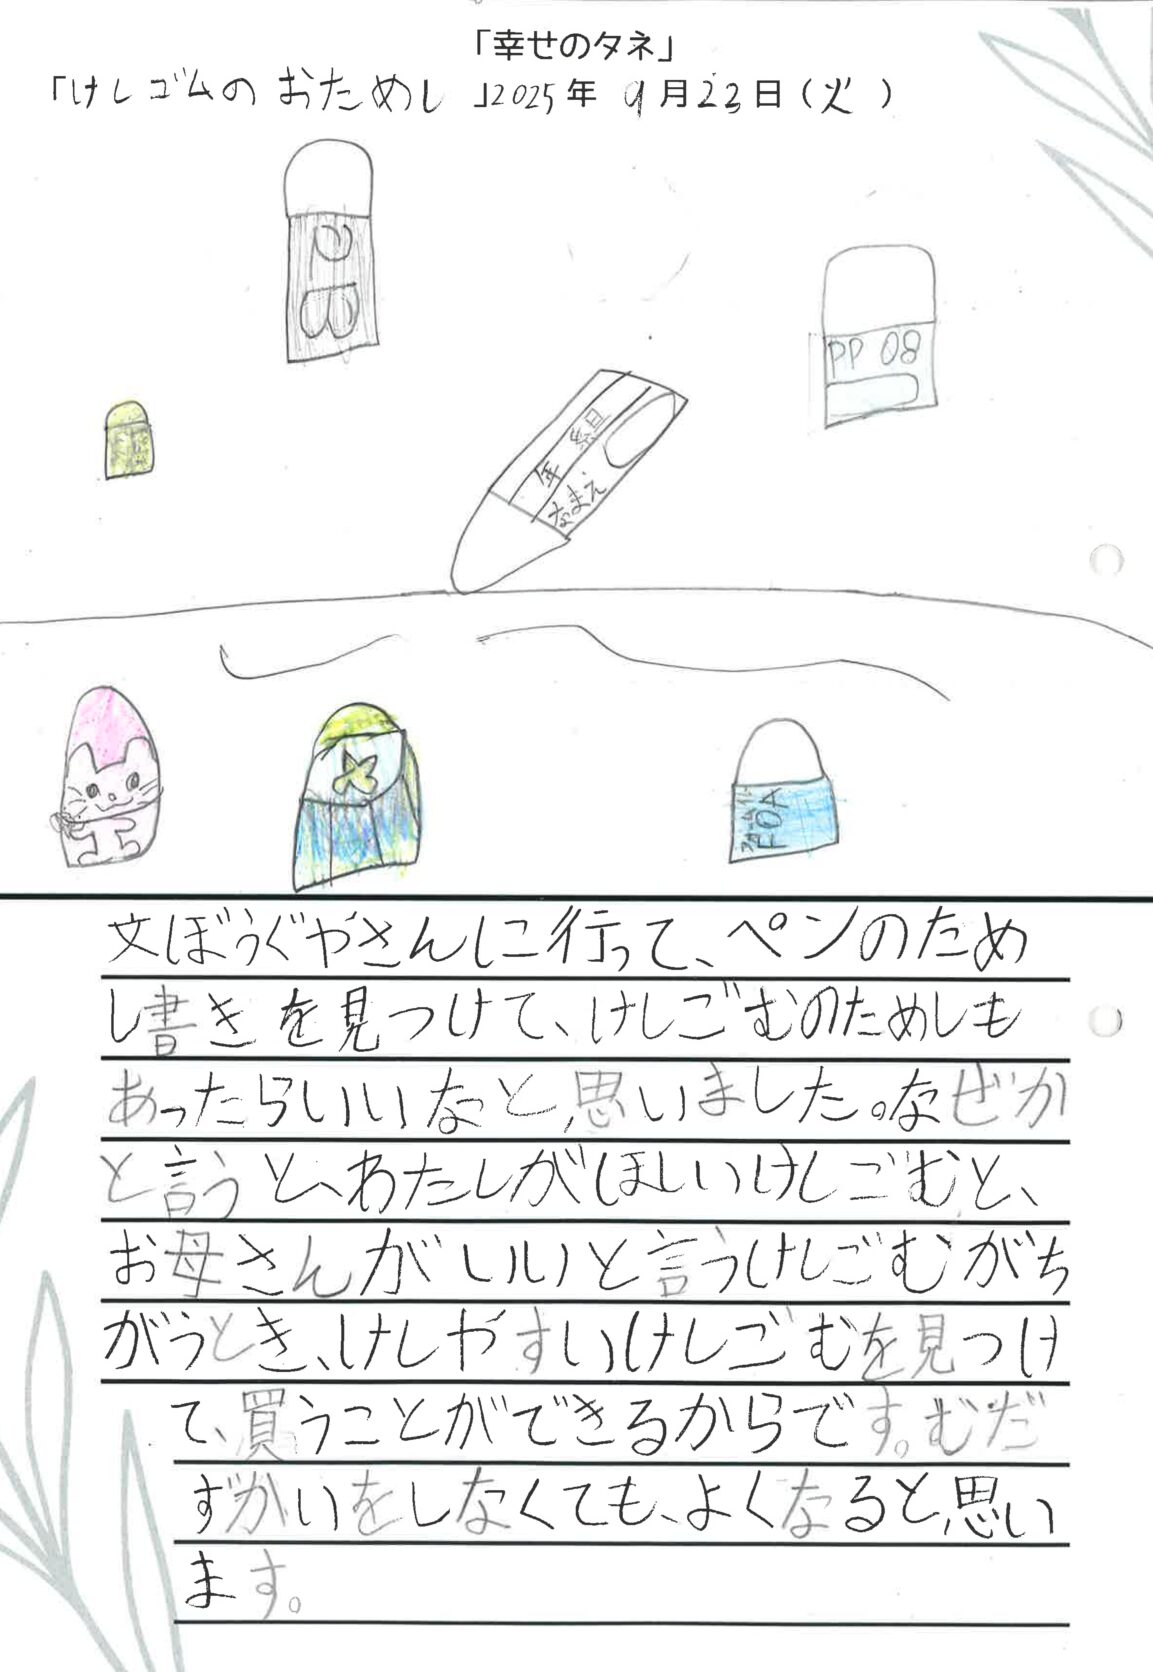 「幸せのタネ」
「けしゴムの おためし 」2025年 9月23日(火 )
PP 08
年 組
なまえ
FOA
文ぼうぐやさんに行って、ペンのため
し書きを見つけて、けしごむのためしも
あったらいいなと思いました。なぜか
と言うと、わたしがほしいけしごむと、
お母さんがいいと言うけしごむがち
がうとき、けしやすいけしごむを見つけ
て、買うことができるからです。むだ
ずかいをしなくても、よくなると思い
ます。